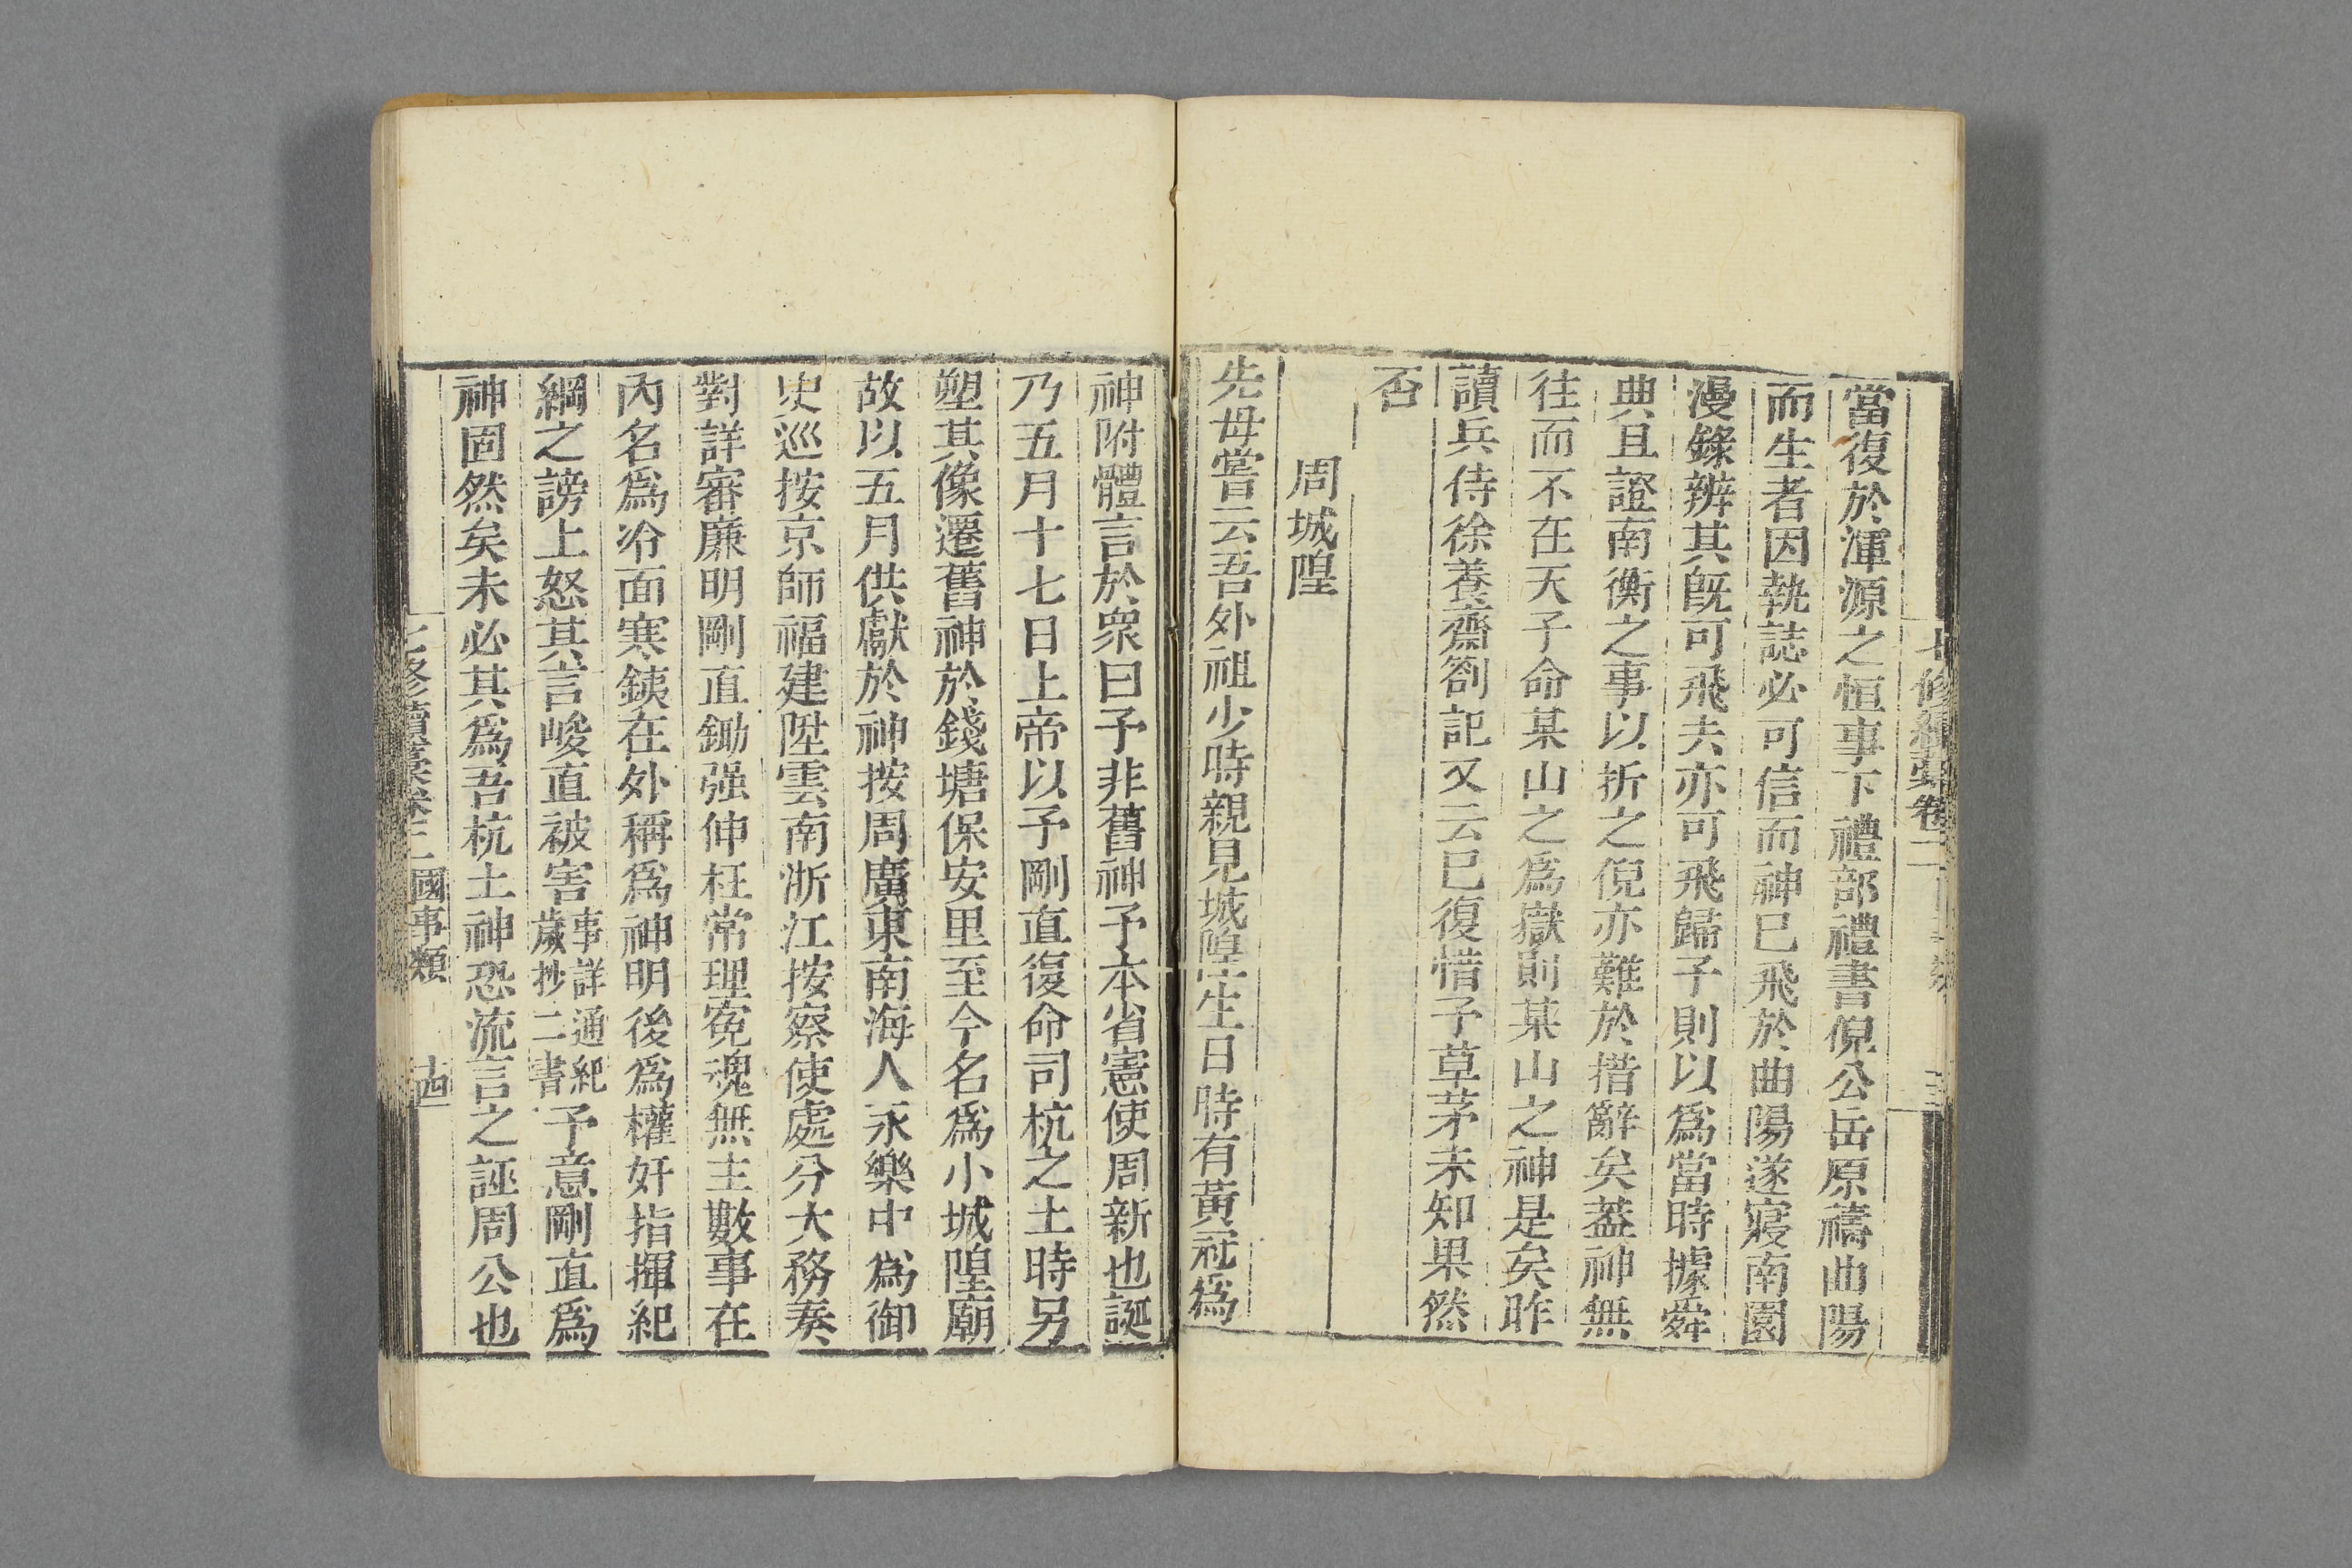 當復於渾源之恒事下禮部禮書倪公岳原禱曲陽
而生者因執誌必可信而神巳飛於曲陽遂寢南園
漫錄辨其旣可飛去亦可飛歸予則以爲當時據舜
典且證南衡之事以折之倪亦難於措辭矣葢神無
往而不在天子命某山之爲嶽則某山之神是矣昨
讀兵侍徐養齋劄記又云已復惜予草茅未知果然
否
周城隍
先母嘗云吾外祖少時親見城隍生日時有黃冠爲
神附體言於衆曰予非舊神予本省憲使周新也誕
乃五月十七日上帝以予剛直復命司杭之土時另
塑其像遷舊神於錢塘保安里至今名爲小城隍廟
故以五月供獻於神按周廣東南海人永樂中爲御
史巡按京師福建陞雲南浙江按察使處分大務奏
對詳審廉明剛直鋤强伸枉常理寃魂無主數事在
內名爲冷面寒鐵在外稱爲神明後爲權奸指揮紀
綱之謗上怒其言峻直被害事詳通紀歲抄二書予意剛直爲
神固然矣未必其爲吾杭土神恐流言之誣周公也
七修續藁卷二 國事類 十四